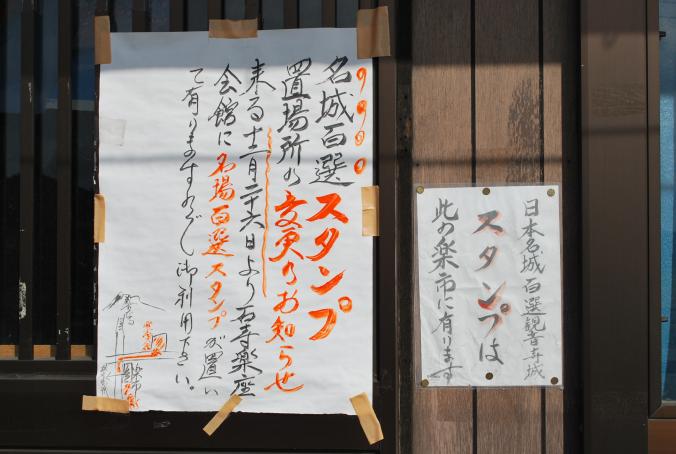 名城百選スタンプ
置場所の変更のお知らせ
来る十一月二十六日より石寺楽座
会館に名場百選スタンプが置い
て有りますのでし御利用下さい。
日本名城百選観音寺城
スタンプは
此の楽市に有ります